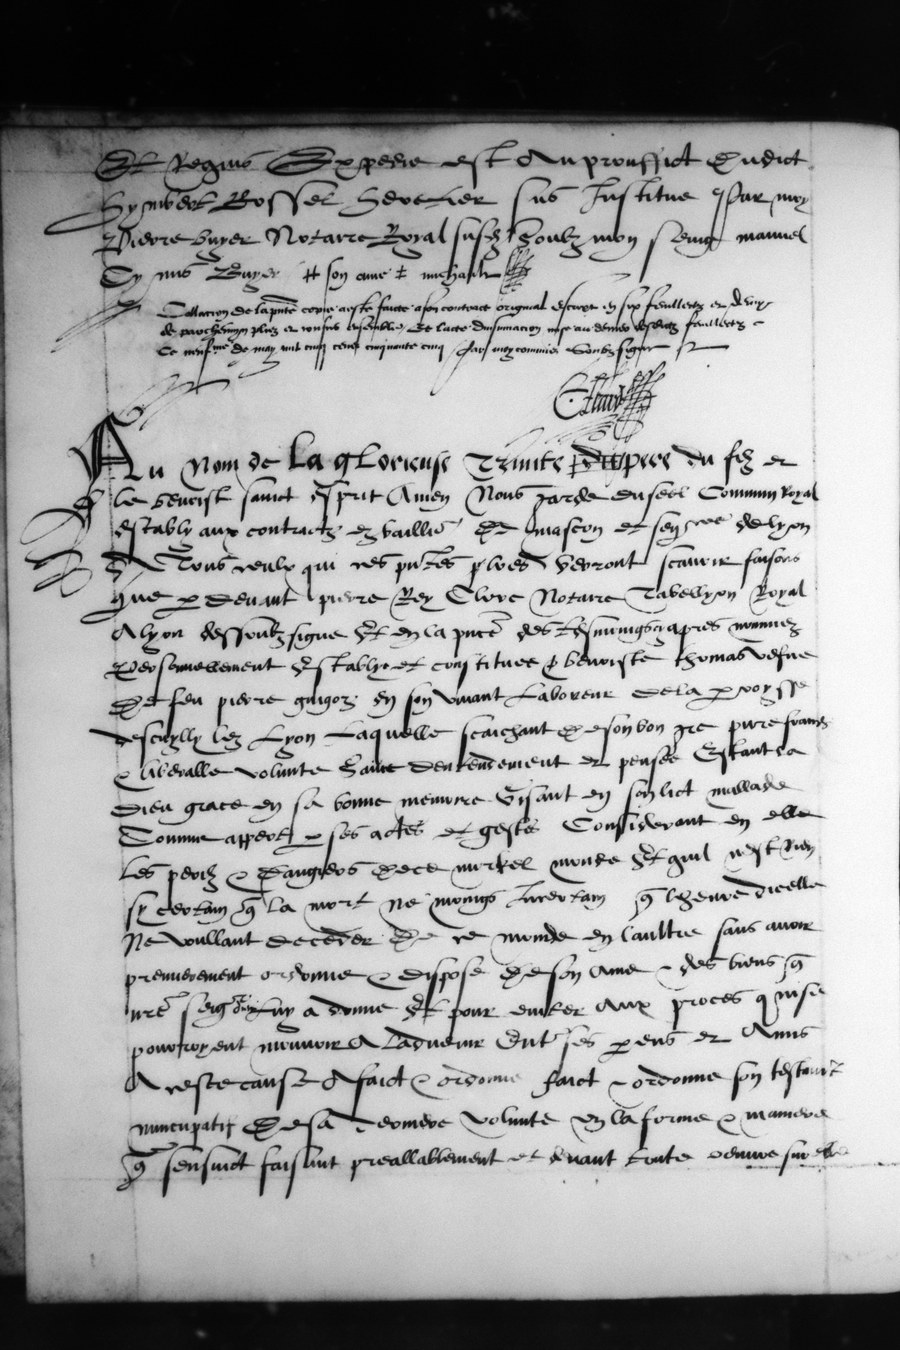 Et Regius Expedie est Au prouffict Dudict
Rossel heretier sus Institue Par moy
Pierre buyer Notaire Royal subz soubz mon seing manuel
Ainsi signe Buyer son ame michault
Collacion de la pnte copie a este faicte a son contract original escript en six feuilletz et demy
de parchemin pliez et cousus ensemble Et lacte dinsinuacion mise au dernier desdictz feuilletz
Ce neufme de may mil cinq cens cinquante cinq Par moy commis soubz signe
Au Nom de La gLorieuse Trinite du pere du filz et
le benoist sainct Esprit Amen Nous garde du seel Commun Royal
estably aux contractz ez bailliaie De mascon et senneschaucee de lyon
A Tous ceulx qui ces pntes lres verront scavoir faisons
que p devant pierre Rey Clerc Notaire Tabellyon Royal
A lyon dessoubz signe Et en la pnce des tesmoings cy apres nommez
Personnellement Establye et constituee benoiste thomas vefve
De feu pierre guigoz en son vivant Laboreur de la parroysse
descully lez Lyon Laquelle scaichant De son bon gre pure franche
& liberalle volunte Saine dentendement et pensee Estant la
Dieu grace en sa bonne memoire Gisant en son lict mallade
Comme appert p ses actes et gestes Considerant en elle
Les perilz & dangiers De ce mortel monde Et quil nest rien
sy certain q la mort ne moings Incertain q lheure dicelle
Ne voullant deceder De ce monde en laultre sans avoir
premierement ordonne & dispose De son ame & des biens q
nre seigr luy a donne Et pour eviter aux proces q naistre
pourroyent mouvoir A Ladvenir Entre ses parens et Amis
A ceste cause A faict & ordonne faict & ordonne son testamt
nuncupatif De sa derniere volunte en la forme & maniere
q sensuict faisant preallablement et avant toute oeuvre sur elle